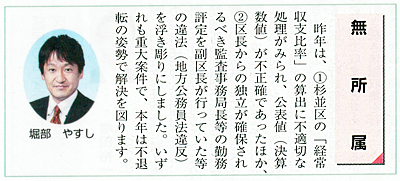 無所属
昨年は、①杉並区の「経常
収支比率」の算出に不適切な
処理がみられ、公表値(決算
数値)が不正確であったほか、
②区長からの独立が確保され
るべき監査事務局長等の勤務
評定を副区長が行っていた等
の違法(地方公務員法違反)
を浮き彫りにしました。いず
れも重大案件で、本年は不退
転の姿勢で解決を図ります。
堀部 やすし